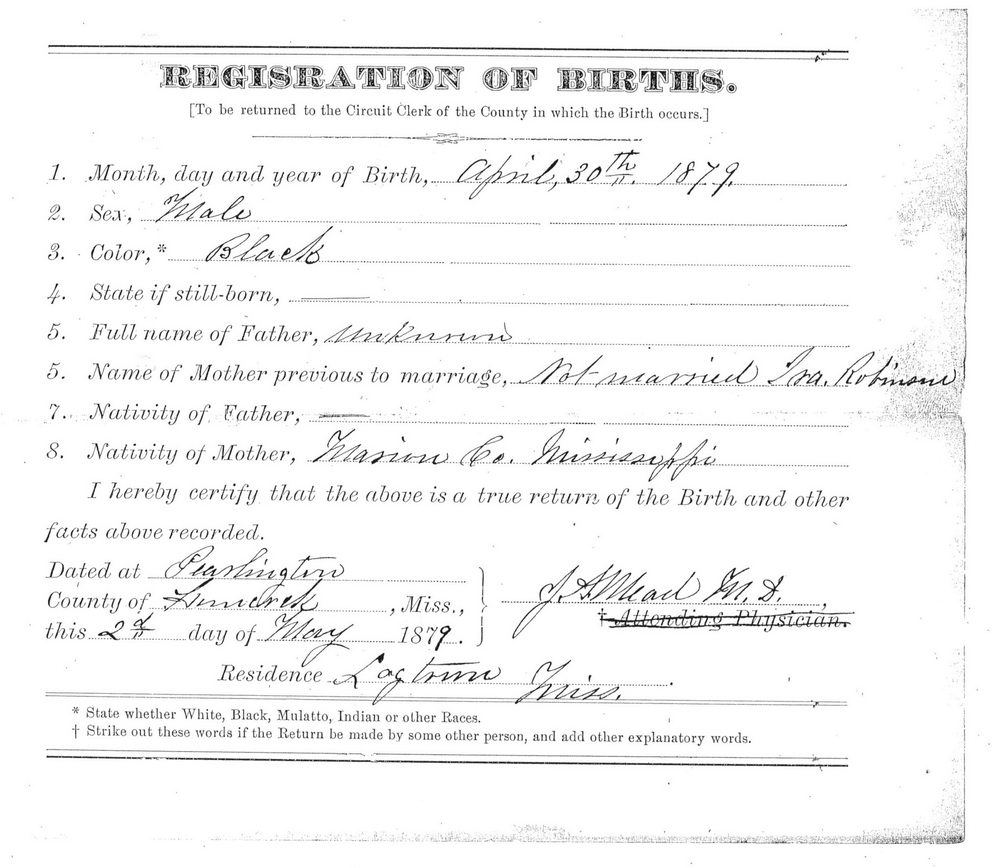 REGISRATION OF BIRTHS.
[To be returned to the Circuit Clerk of the County in which the Birth occurs.]
1. Month, day and year of Birth, April, 30th. 1879.
2. Sex, Male
3. Color,* Black
4. State if still-born,
5. Full name of Father, unknown
5. Name of Mother previous to marriage, Not married Iva. Robinson
7. Nativity of Father,
8. Nativity of Mother, Marion Co. Mississippi
I hereby certify that the above is a true return of the Birth and other
facts above recorded.
Dated at Pearlington
County of , Miss.,
J. A. Mead M.D.,
† Attending Physician.
this 2d day of May 1879.
Residence Logtown Miss.
* State whether White, Black, Mulatto, Indian or other Races.
† Strike out these words if the Return be made by some other person, and add other explanatory words.